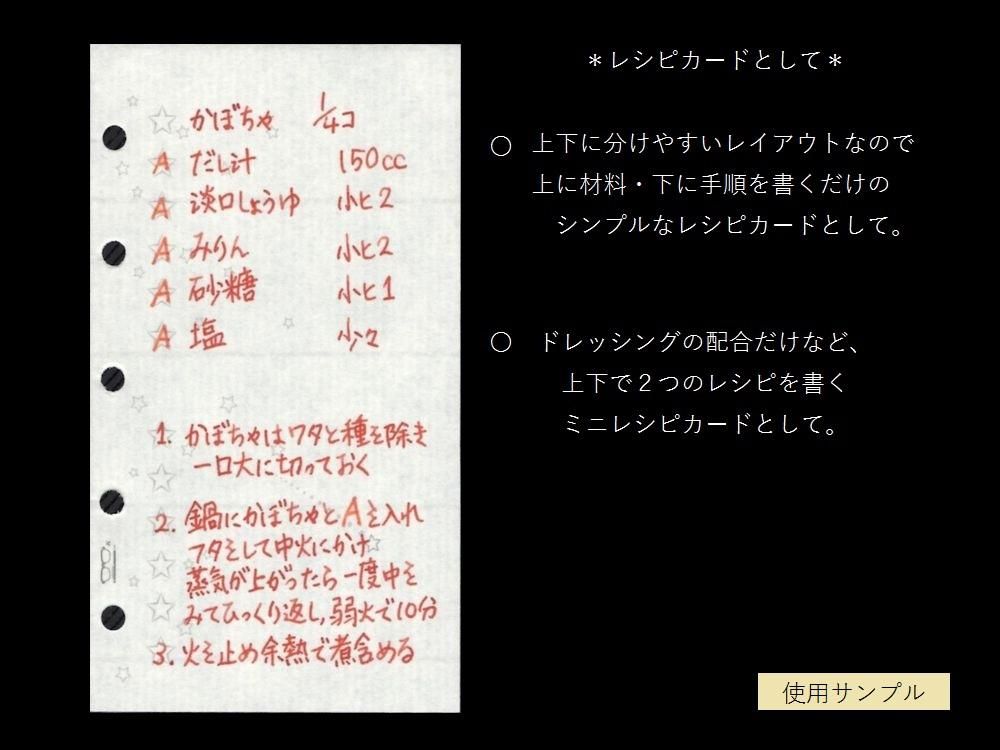 かぼちゃ 1/4コ
A だし汁 150cc
A 淡口しょうゆ 小ヒ2
A みりん 小ヒ2
A 砂糖 小ヒ1
A 塩 少々
1. かぼちゃはワタと種を除き
一口大に切っておく
2. 鍋にかぼちゃとAを入れ
フタをして中火にかけ
蒸気が上がったら一度中を
みてひっくり返し,弱火で10分
3. 火を止め余熱で煮含める
＊レシピカードとして＊
○ 上下に分けやすいレイアウトなので
上に材料・下に手順を書くだけの
シンプルなレシピカードとして。
○ ドレッシングの配合だけなど、
上下で２つのレシピを書く
ミニレシピカードとして。
使用サンプル